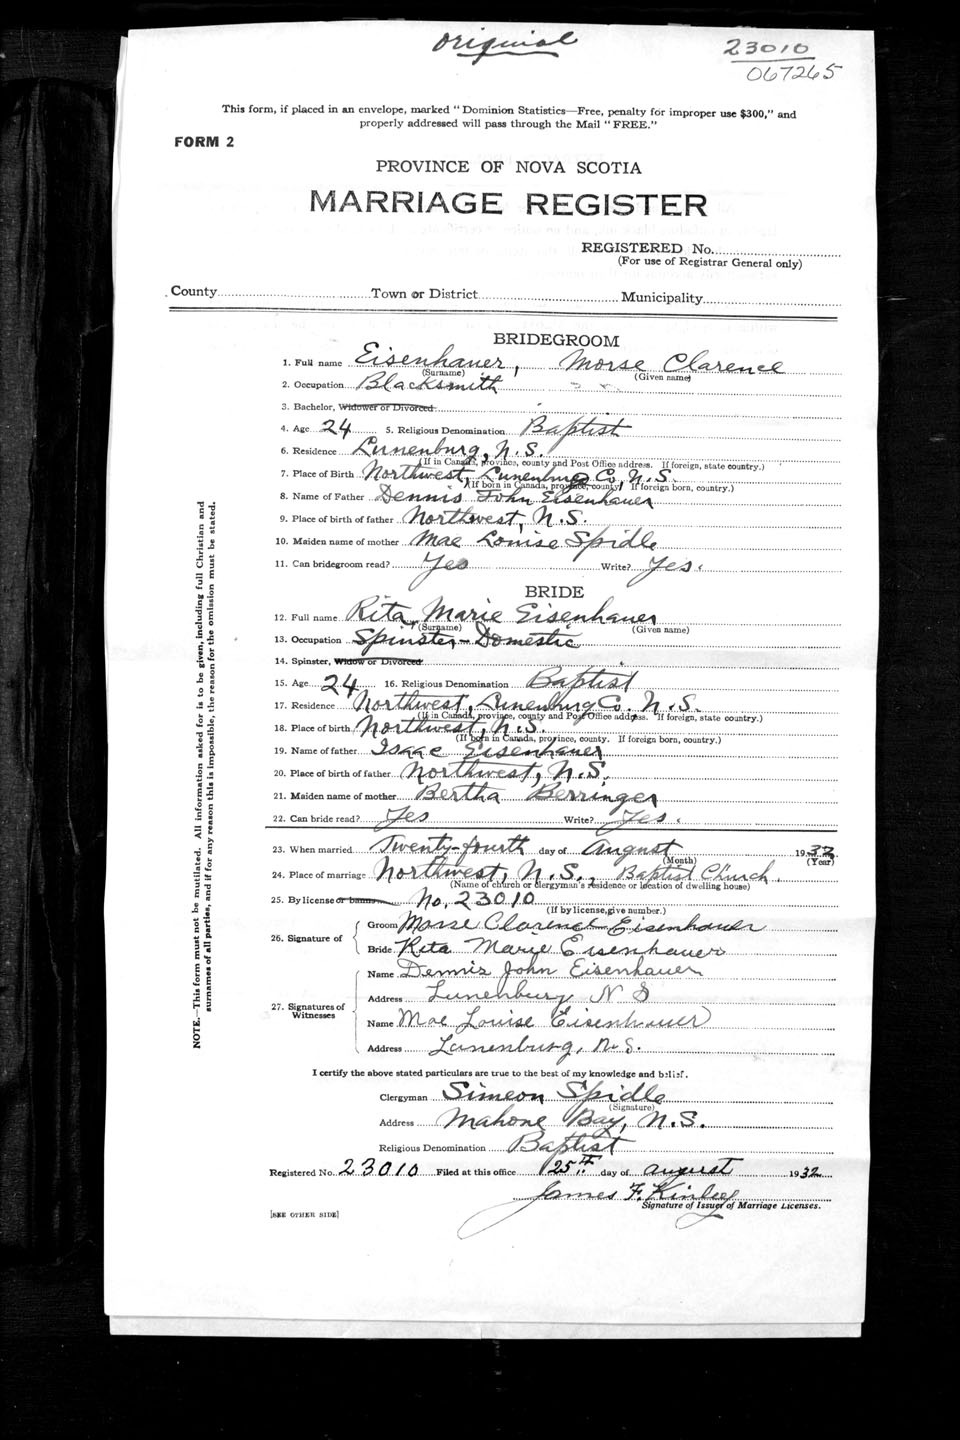 original
23010
067265
This form, if placed in an envelope, marked "Dominion Statistics—Free, penalty for improper use $300," and
properly addressed will pass through the Mail "FREE."
FORM 2
PROVINCE OF NOVA SCOTIA
MARRIAGE REGISTER
REGISTERED No.
(For use of Registrar General only)
County Town or District Municipality
BRIDEGROOM
1. Full name Eisenhauer, Morse Clarence
(Surname) (Given name)
2. Occupation Blacksmith
3. Bachelor, Widower or Divorced
4. Age 24 5. Religious Denomination Baptist
6. Residence Lunenburg, N.S.
(If in Canada, province, county and Post Office address. If foreign, state country.)
7. Place of Birth Northwest, Lunenburg Co. N.S.
(If born in Canada, province, county. If foreign born, country.)
8. Name of Father Dennis John Eisenhauer
9. Place of birth of father Northwest, N.S.
10. Maiden name of mother Mae Louise Spidle
11. Can bridegroom read? Yes Write? Yes.
BRIDE
12. Full name Rita Marie Eisenhauer
(Surname) (Given name)
13. Occupation Spinster - Domestic
14. Spinster, Widow or Divorced
15. Age 24 16. Religious Denomination Baptist
17. Residence Northwest, Lunenburg Co. N.S.
(If in Canada, province, county and Post Office address. If foreign, state country.)
18. Place of birth Northwest, N.S.
(If born in Canada, province, county. If foreign born, country.)
19. Name of father Isaac Eisenhauer
20. Place of birth of father Northwest, N.S.
21. Maiden name of mother Bertha Berringer
22. Can bride read? Yes Write? Yes.
23. When married Twenty-fourth day of August 1932
(Month) (Year)
24. Place of marriage Northwest, N.S., Baptist Church.
(Name of church or clergyman's residence or location of dwelling house)
25. By license or banns No. 23010
(If by license, give number.)
26. Signature of
Groom Morse Clarence Eisenhauer
Bride Rita Marie Eisenhauer
27. Signatures of Witnesses
Name Dennis John Eisenhauer
Address Lunenburg N S
Name Mae Louise Eisenhauer
Address Lunenburg, N.S.
I certify the above stated particulars are true to the best of my knowledge and belief.
Clergyman Simeon Spidle
(Signature)
Address Mahone Bay, N.S.
Religious Denomination Baptist
Registered No. 23010 Filed at this office 25th day of august 1932
James F. Kinley
Signature of Issuer of Marriage Licenses.
[SEE OTHER SIDE]
NOTE.—This form must not be mutilated. All information asked for is to be given, including full Christian and
surnames of all parties, and if for any reason this is impossible, the reason for the omission must be stated.